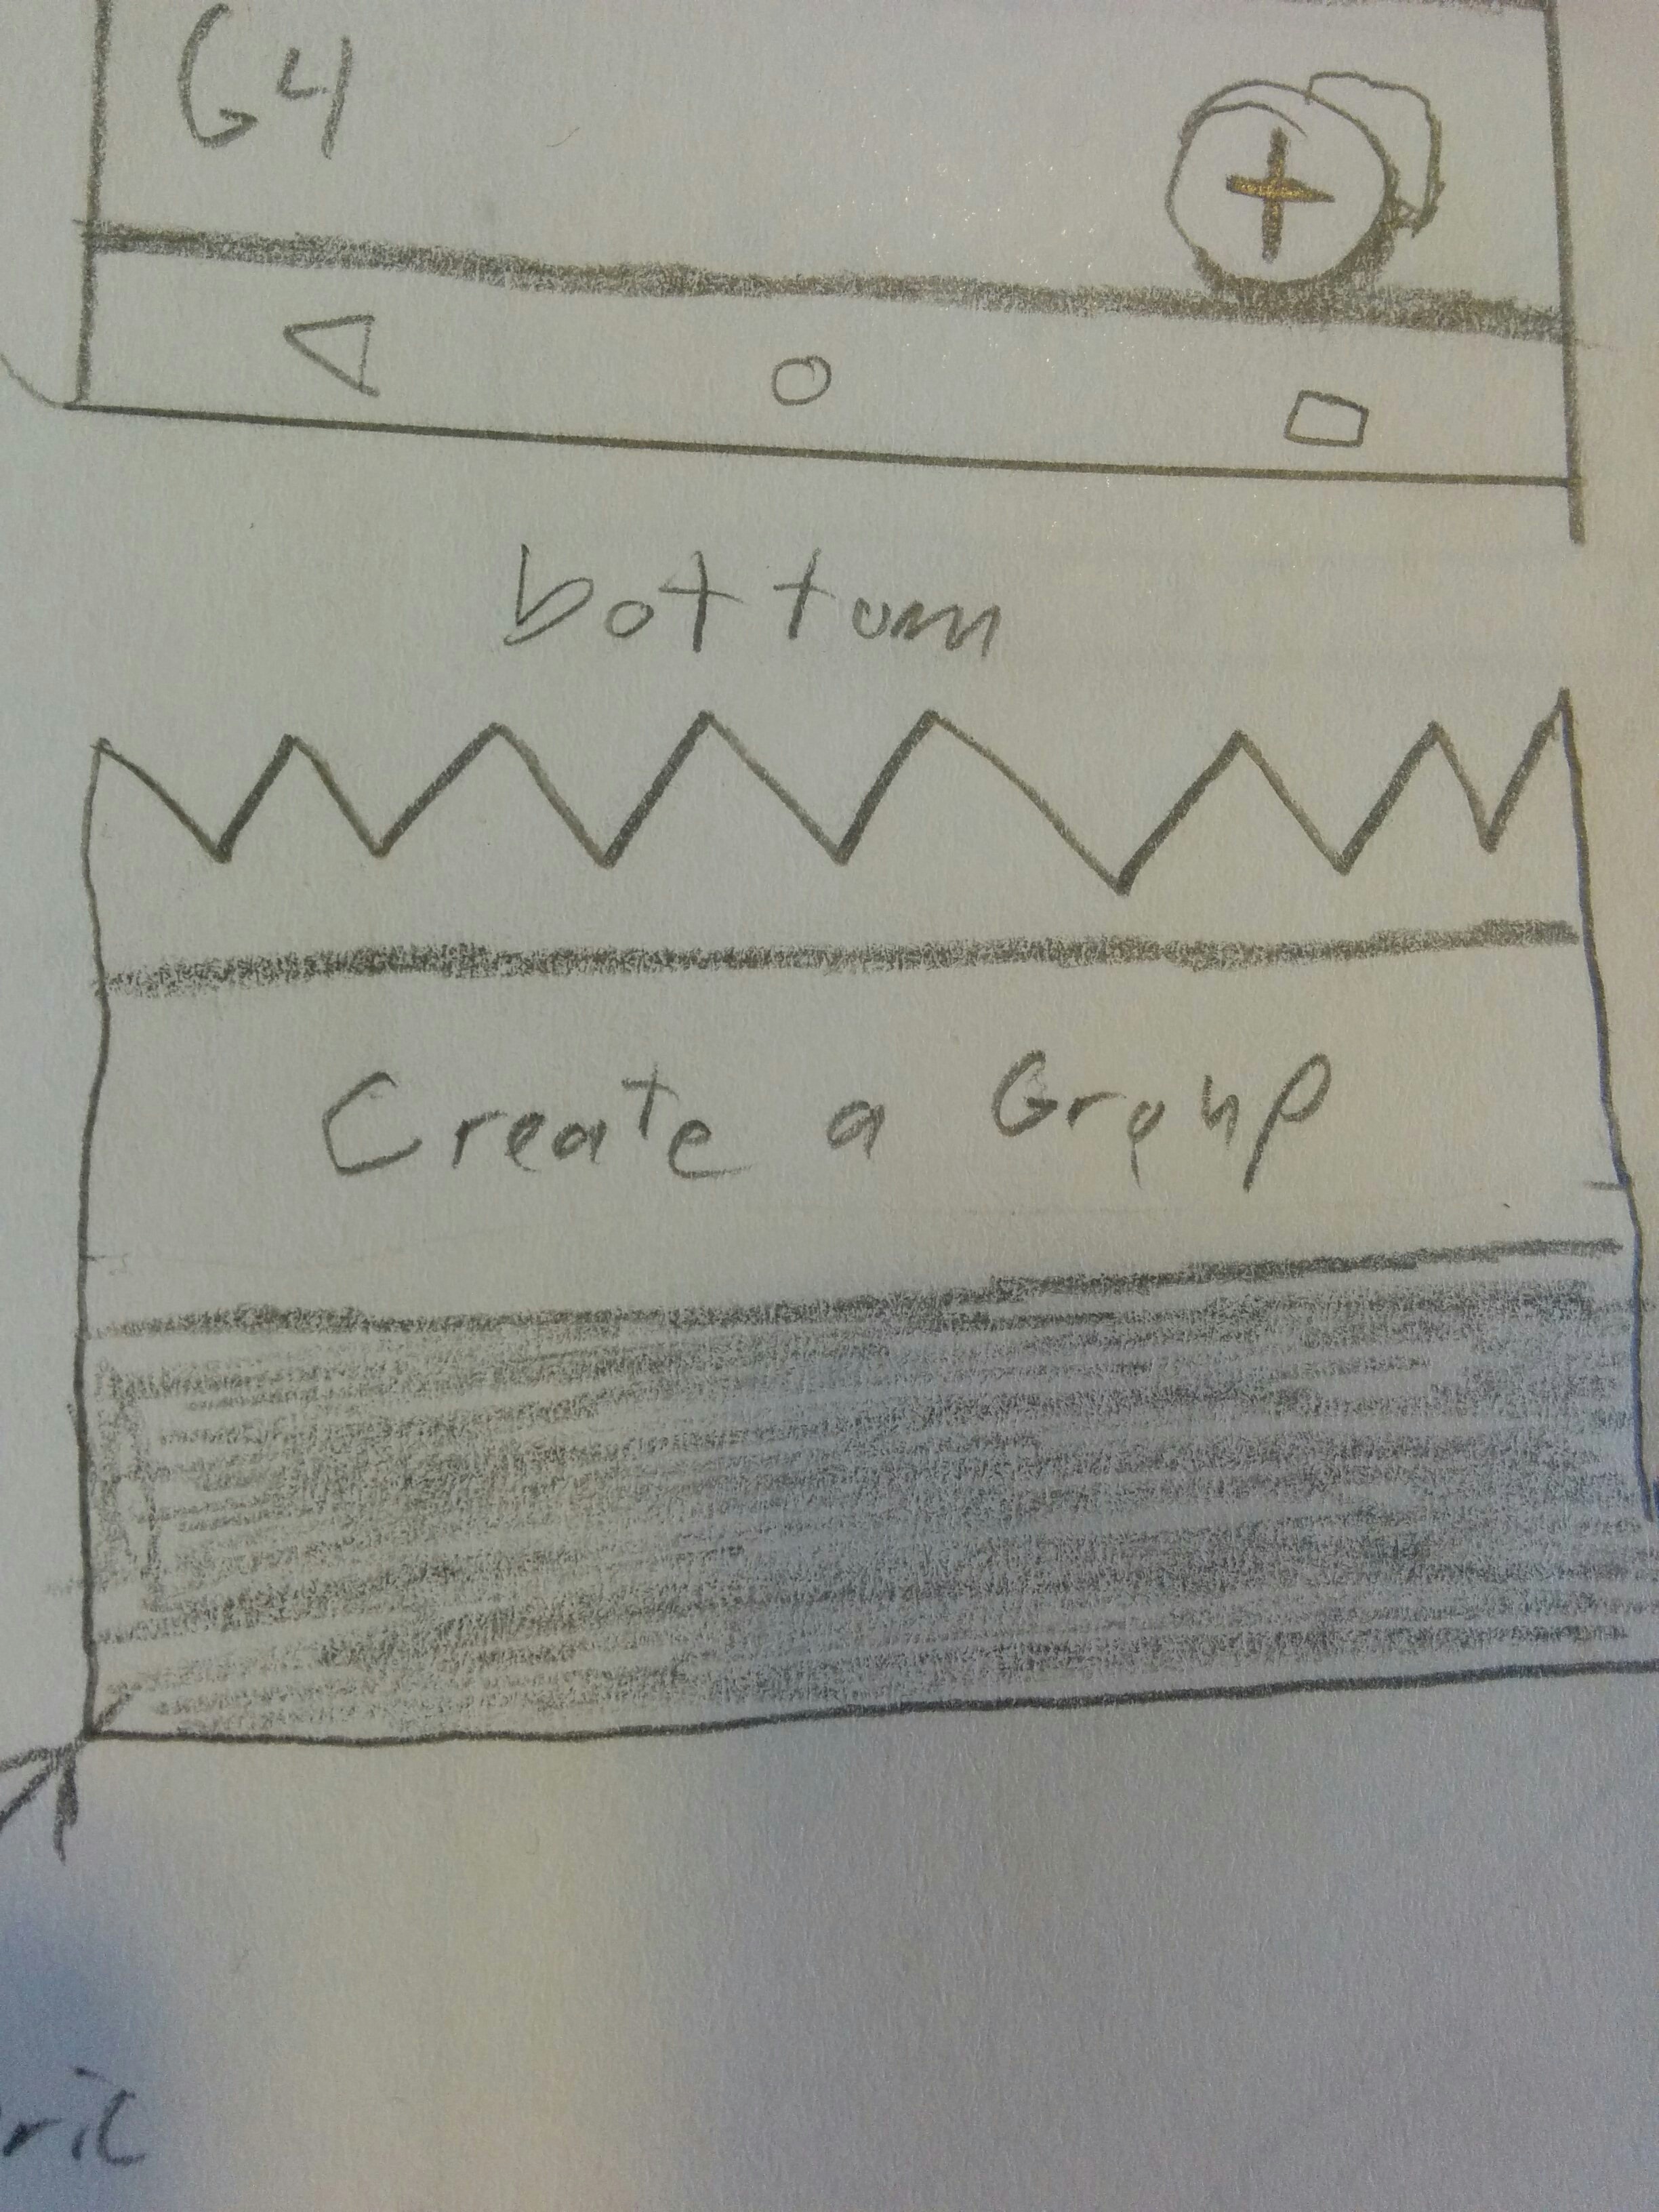 G4
+
bottom
Create a Group
ric